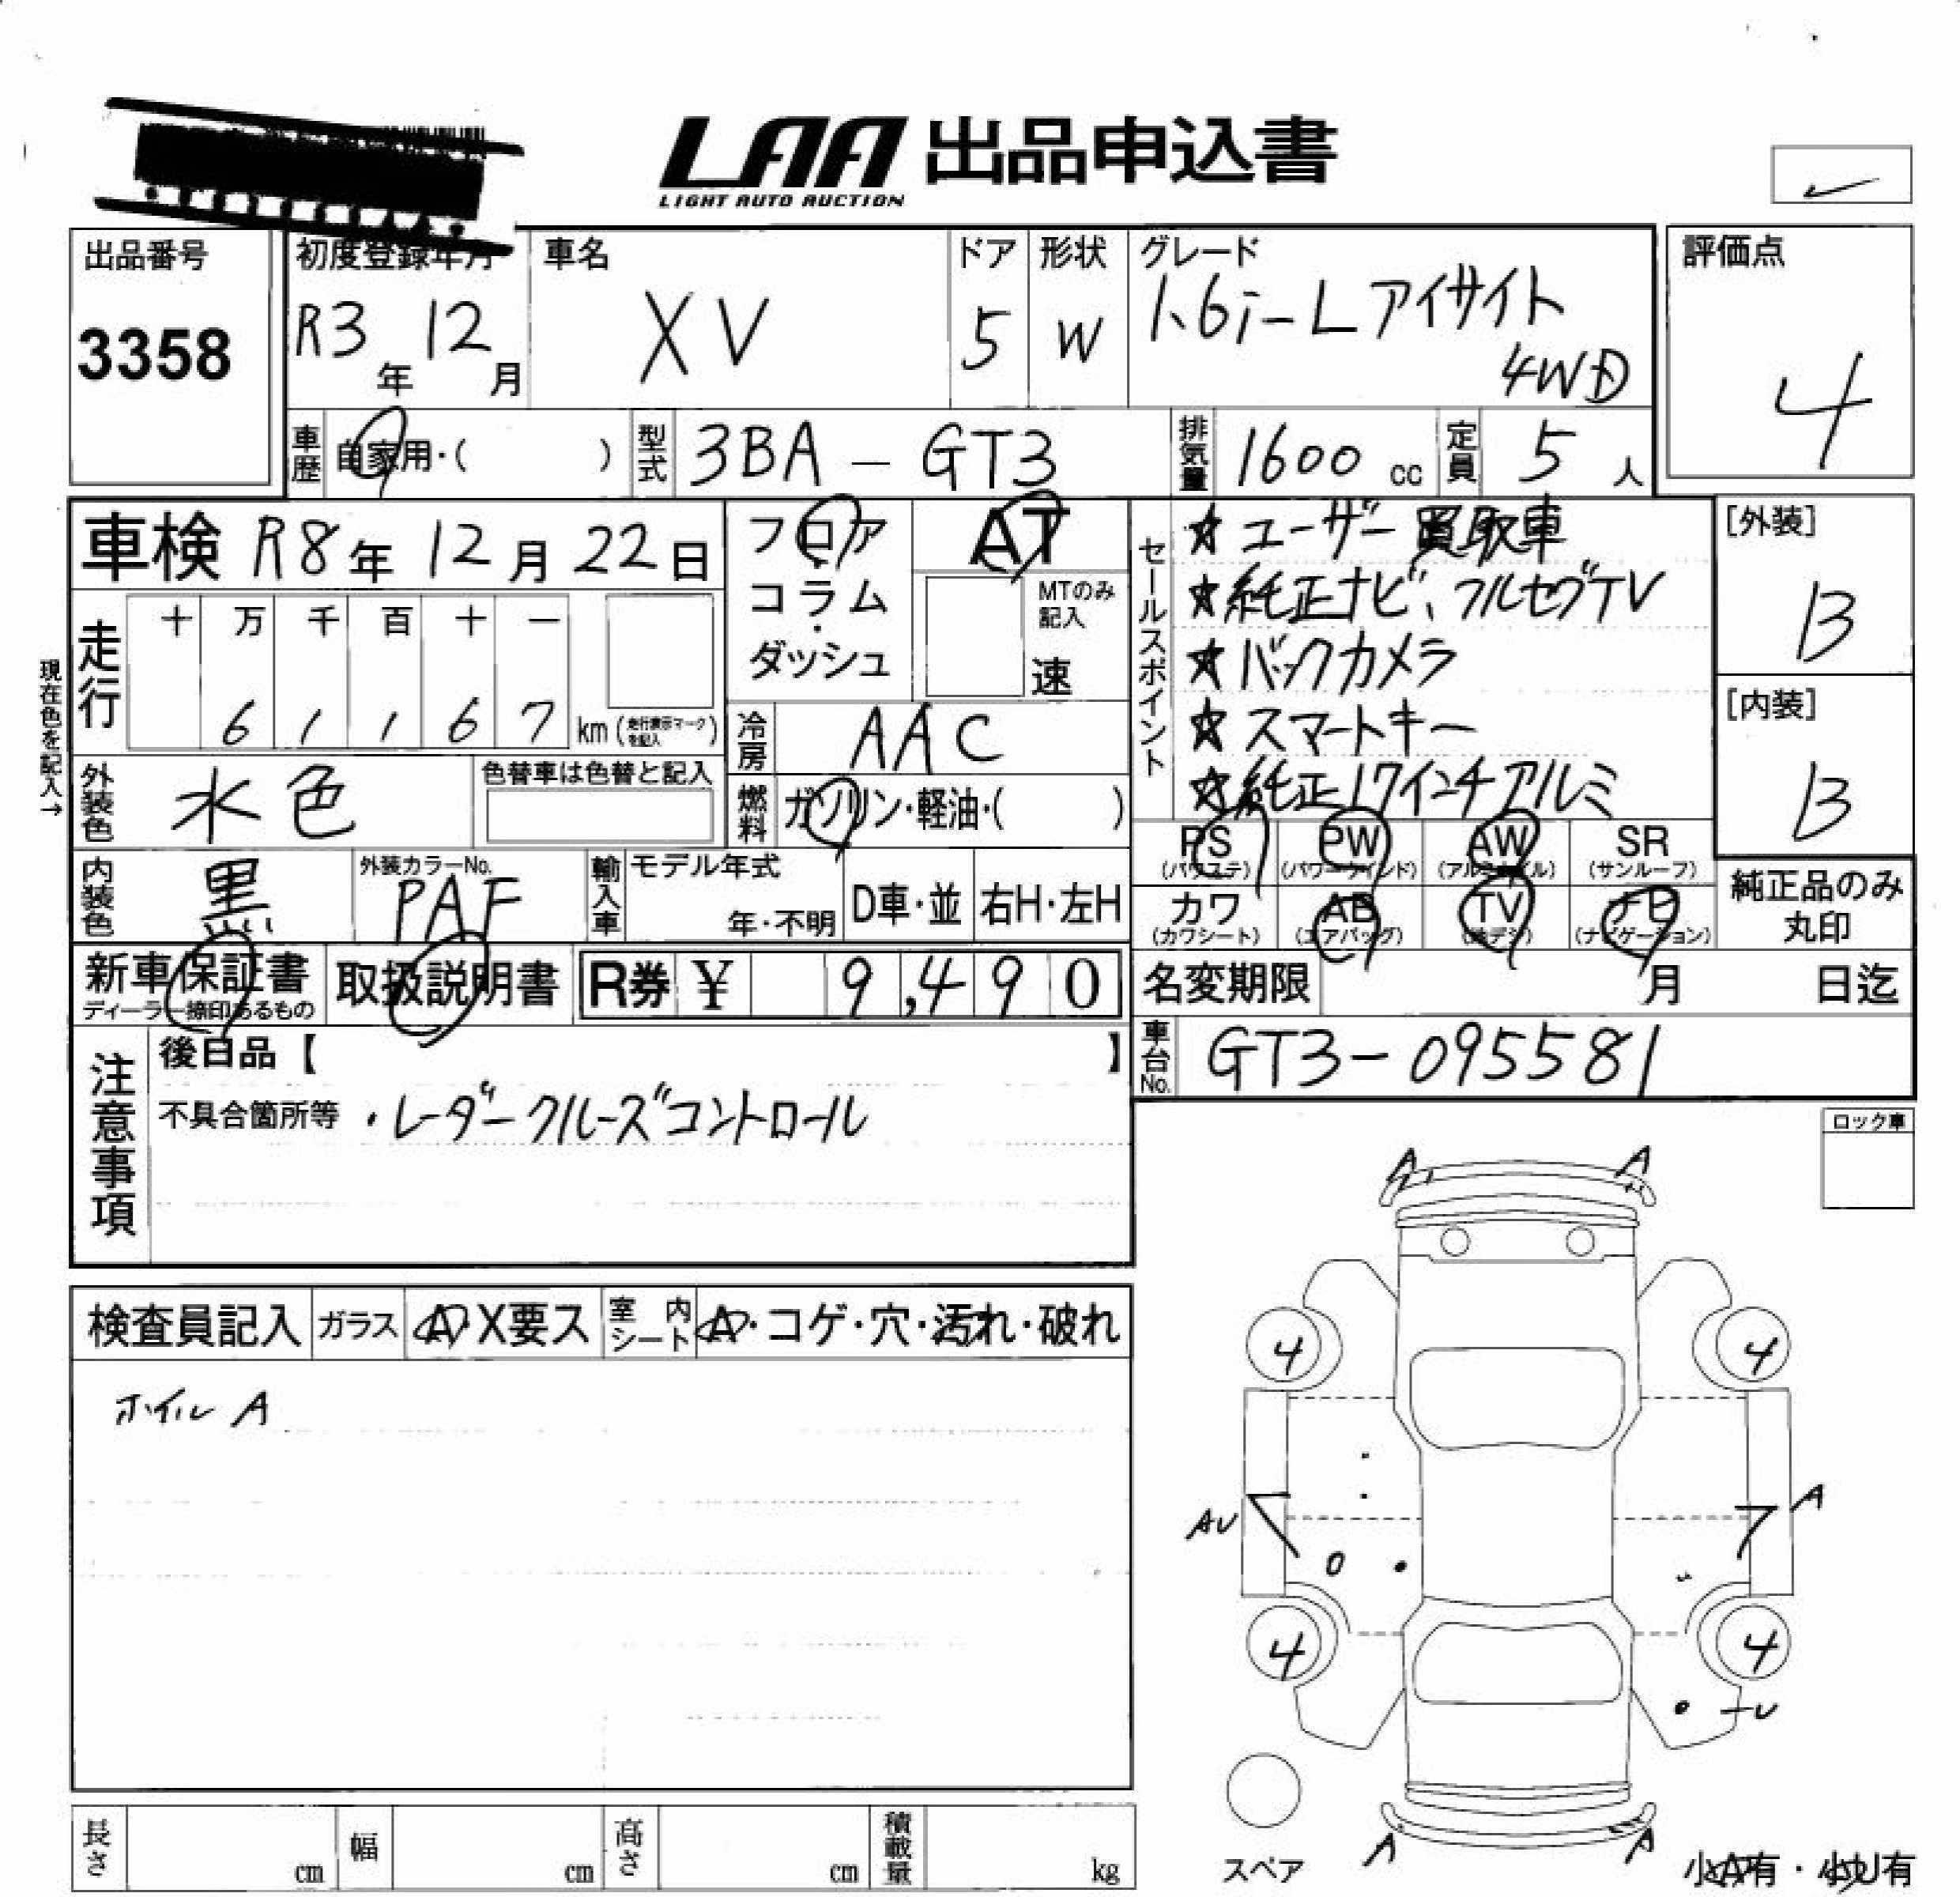 LAA 出品申込書
LIGHT AUTO AUCTION
出品番号
3358
初度登録年月
R3年 12月
車名
XV
ドア
5
形状
W
グレード
1.6i-L アイサイト
4WD
評価点
4
車歴 自家用・( )
型式 3BA - GT3
排気量 1600 cc
定員 5 人
車検 R8年 12月 22日
フロア・コラム・ダッシュ
AT
MTのみ記入
速
セールスポイント
☆ユーザー買取車
☆純正ナビ、フルセグTV
☆バックカメラ
☆スマートキー
☆純正17インチアルミ
[外装]
B
[内装]
B
現在色を記入→
走行
十 万 千 百 十 一
6 1 1 6 7 km (走行表示マークを記入)
冷房 AAC
外装色 水色
色替車は色替と記入
燃料 ガソリン・軽油・( )
PS (パワステ)
PW (パワーウインド)
AW (アルミホイル)
SR (サンルーフ)
カワ (カワシート)
AB (エアバッグ)
TV (地デジ)
ナビ (ナビゲーション)
純正品のみ丸印
内装色 黒
外装カラーNo.
PAF
輸入車 モデル年式
年・不明
D車・並
右H・左H
新車保証書
ディーラー捺印あるもの
取扱説明書
R券 ¥ 9,490
名変期限 月 日迄
車台No. GT3-095581
注意事項
後日品【 】
不具合箇所等 ・レーダークルーズコントロール
ロック車
検査員記入
ガラス A・X要ス
室内シート A・コゲ・穴・汚れ・破れ
ホイル A
A A
4 4
AU A
4 4
U
A A
スペア
小A有・小U有
長さ cm
幅 cm
高さ cm
積載量 kg